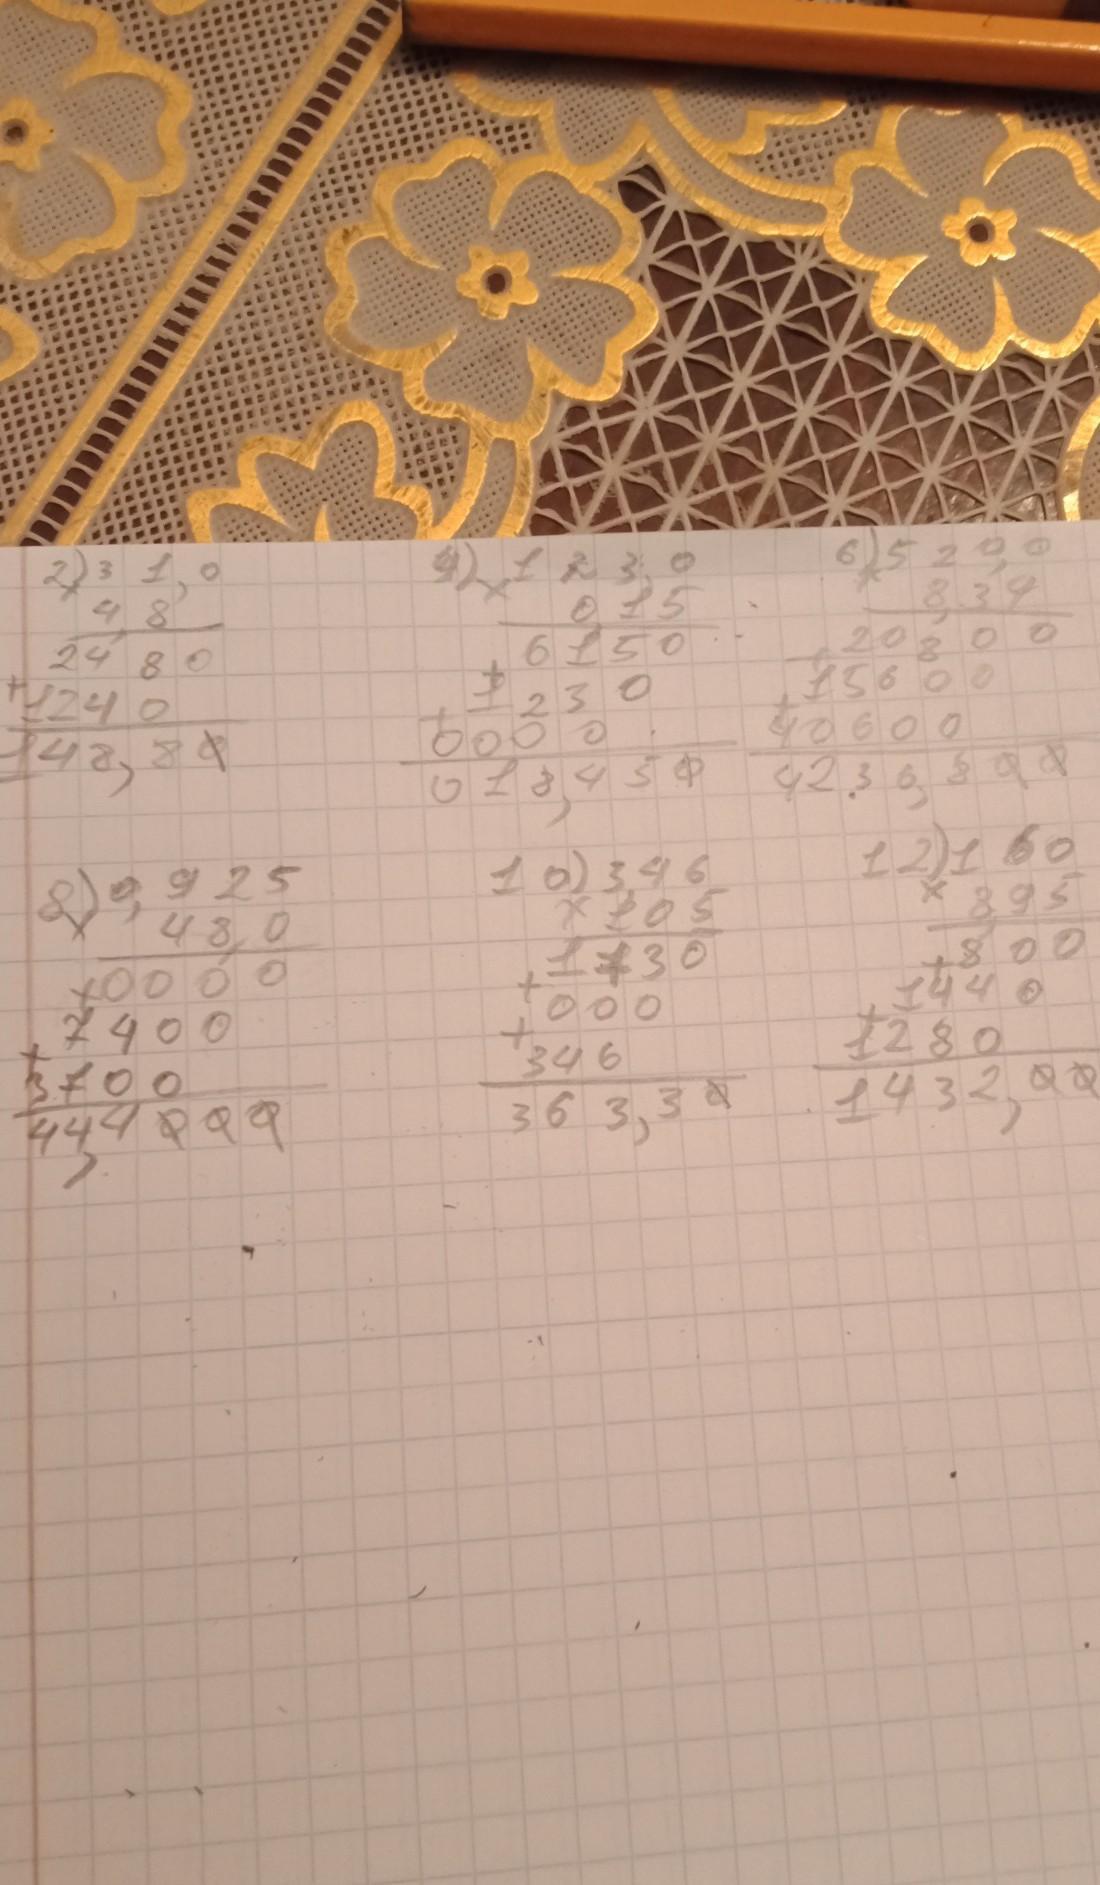 2) 31,0
× 4,8
2480
+ 1240
148,80
4) × 123,0
0,15
6150
+ 1230
+ 0000
018,450
6) × 520,0
8,34
20800
+ 15600
+ 40600
4236,800
8) × 0,925
48,0
+ 0000
7400
+ 3700
44,4000
10) 3,46
× 105
1730
+ 000
+ 346
363,30
12) 160
× 8,95
+ 800
+ 1440
1280
1432,00